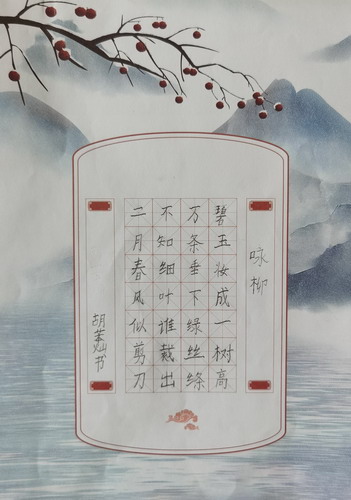 咏柳
碧玉妆成一树高
万条垂下绿丝绦
不知细叶谁裁出
二月春风似剪刀
胡萋灿书